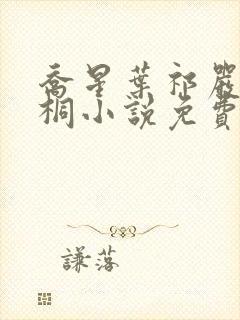 喬星葉祁嚴
桐小説免費
謙落